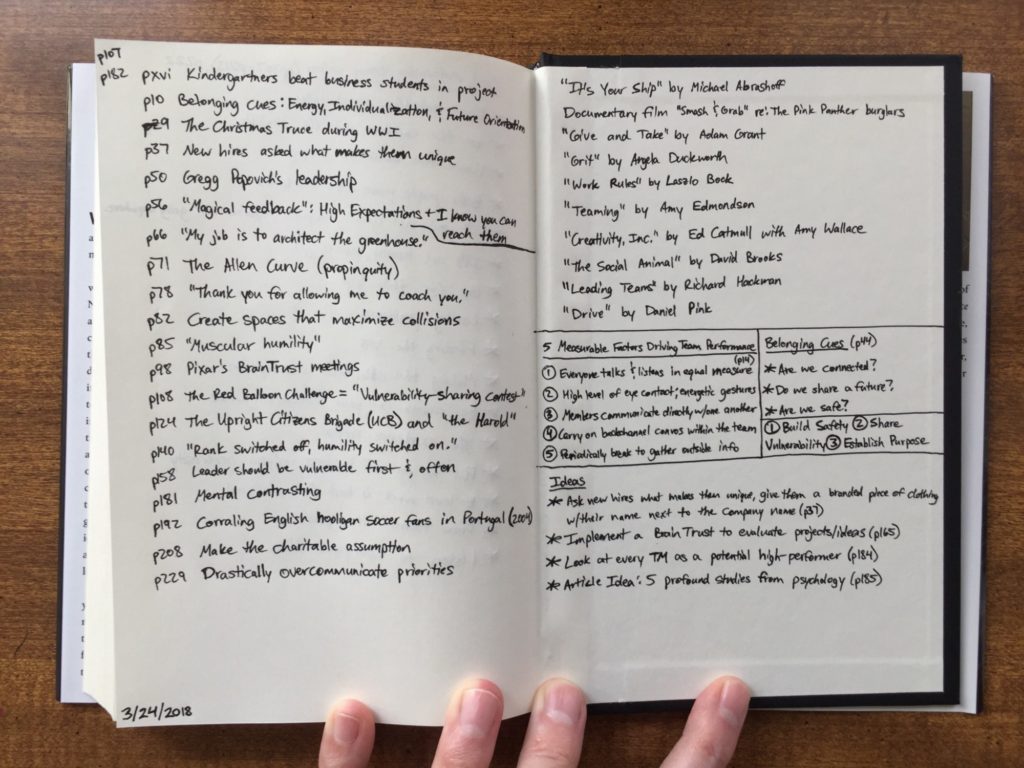 p107
p182
pxvi Kindergartners beat business students in project
p10 Belonging Cues: Energy, Individualization, & Future Orientation
p29 The Christmas Truce during WWI
p37 New hires asked what makes them unique
p50 Gregg Popovich's leadership
p56 "Magical feedback": High Expectations + I know you can
reach them
p66 "My job is to architect the greenhouse."
p71 The Allen Curve (propinquity)
p78 "Thank you for allowing me to coach you."
p82 Create spaces that maximize collisions
p85 "Muscular humility"
p98 Pixar's BrainTrust meetings
p108 the Red Balloon Challenge = "Vulnerability sharing contest"
p124 The Upright Citizens Brigade (UCB) and "the Harold"
p140 "Rank switched off, humility switched on."
p158 Leader should be vulnerable first &, often
p181 Mental contrasting
p192 Corraling English hooligan soccer fans in Portugal (2004)
p208 Make the charitable assumption
p229 Drastically overcommunicate priorities
3/24/2018
"It's Your Ship" by Michael Abrashoff
Documentary film "Smash & Grab" re: The Pink Panther burglars
"Give and Take" by Adam Grant
"Grit" by Angela Duckworth
"Work Rules" by Laszlo Bock
"Teaming" by Amy Edmondson
"Creativity, Inc." by Ed Catmull with Amy Wallace
"The Social Animal" by David Brooks
"Leading Teams" by Richard Hackman
"Drive" by Daniel Pink
5 Measurable Factors Driving Team Performance
(p14)
① Everyone talks & listens in equal measure
② High level of eye contact; energetic gestures
③ Members communicate directly w/one another
④ Carry on backchannel convos within the team
⑤ Periodically break to gather outside info
Belonging Cues (p44)
* Are we connected?
* Do we share a future?
* Are we safe?
① Build Safety ② Share
Vulnerability ③ Establish Purpose
Ideas
* Ask new hires what makes them unique, give them a branded piece of clothing
w/their name next to the company name (p37)
* Implement a BrainTrust to evaluate projects/ideas (p165)
* Look at every TM as a potential high-performer (p184)
* Article Idea: 5 profound studies from psychology (p185)